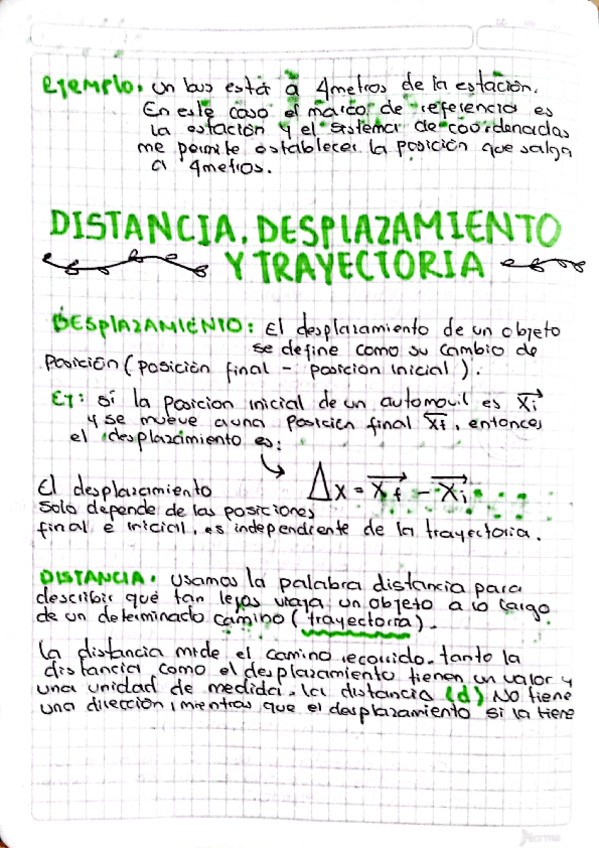 Ejemplo: un bus está a 4metros de la estación.
En este caso el marco de referencia es
la estación y el sistema de coordenadas
me permite establecer la posición que salga
a 4metros.
DISTANCIA, DESPLAZAMIENTO
Y TRAYECTORIA
DESPLAZAMIENTO: El desplazamiento de un objeto
se define como su cambio de
posición (posición final - posición inicial).
EJ: si la posicion inicial de un automovil es Xi
y se mueve a una posición final Xf, entonces
el desplazamiento es:
Δx = Xf - Xi
El desplazamiento
solo depende de las posiciones
final e inicial, es independiente de la trayectoria.
DISTANCIA: usamos la palabra distancia para
describir qué tan lejos viaja un objeto a lo largo
de un determinado camino (trayectoria).
La distancia mide el camino recorrido. tanto la
distancia como el desplazamiento tienen un valor y
una unidad de medida. la distancia (d) NO tiene
una dirección, mientras que el desplazamiento si la tiene